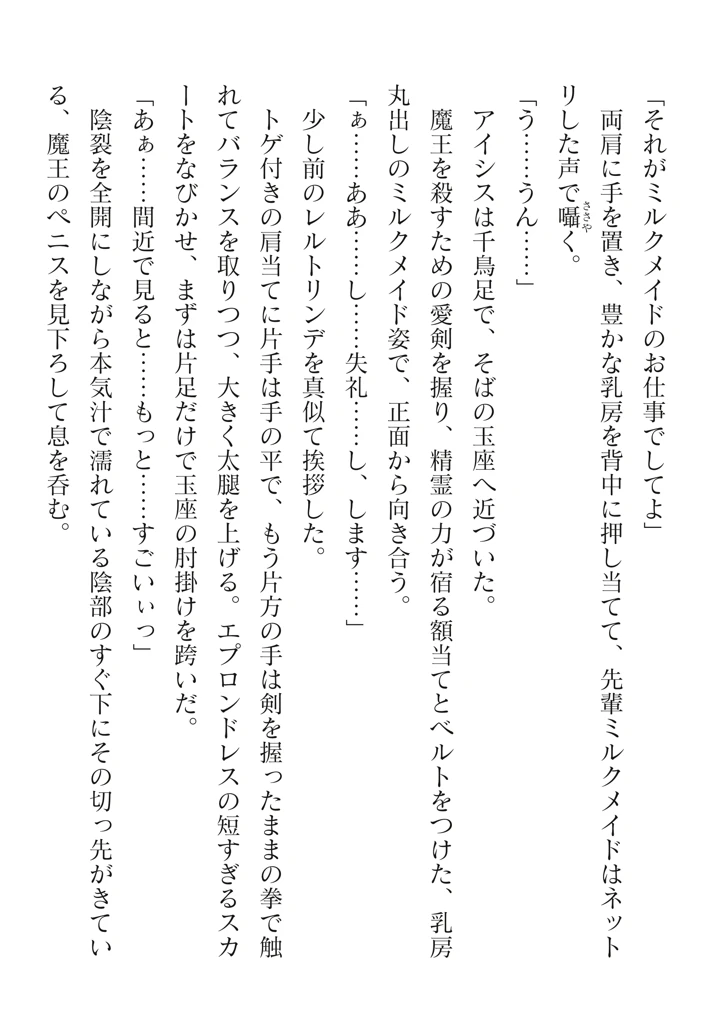 「それがミルクメイドのお仕事でしてよ」
　両肩に手を置き、豊かな乳房を背中に押し当てて、先輩ミルクメイドはネット
リした声で囁く。
ささや
「う……うん……」
　アイシスは千鳥足で、そばの玉座へ近づいた。
　魔王を殺すための愛剣を握り、精霊の力が宿る額当てとベルトをつけた、乳房
丸出しのミルクメイド姿で、正面から向き合う。
「ぁ……ああ……し……失礼……し、します……」
　少し前のレルトリンデを真似て挨拶した。
　トゲ付きの肩当てに片手は手の平で、もう片方の手は剣を握ったままの拳で触
れてバランスを取りつつ、大きく太腿を上げる。エプロンドレスの短すぎるスカ
ートをなびかせ、まずは片足だけで玉座の肘掛けを跨いだ。
「あぁ……間近で見ると……もっと……すごいぃっ」
　陰裂を全開にしながら本気汁で濡れている陰部のすぐ下にその切っ先がきてい
る、魔王のペニスを見下ろして息を呑む。